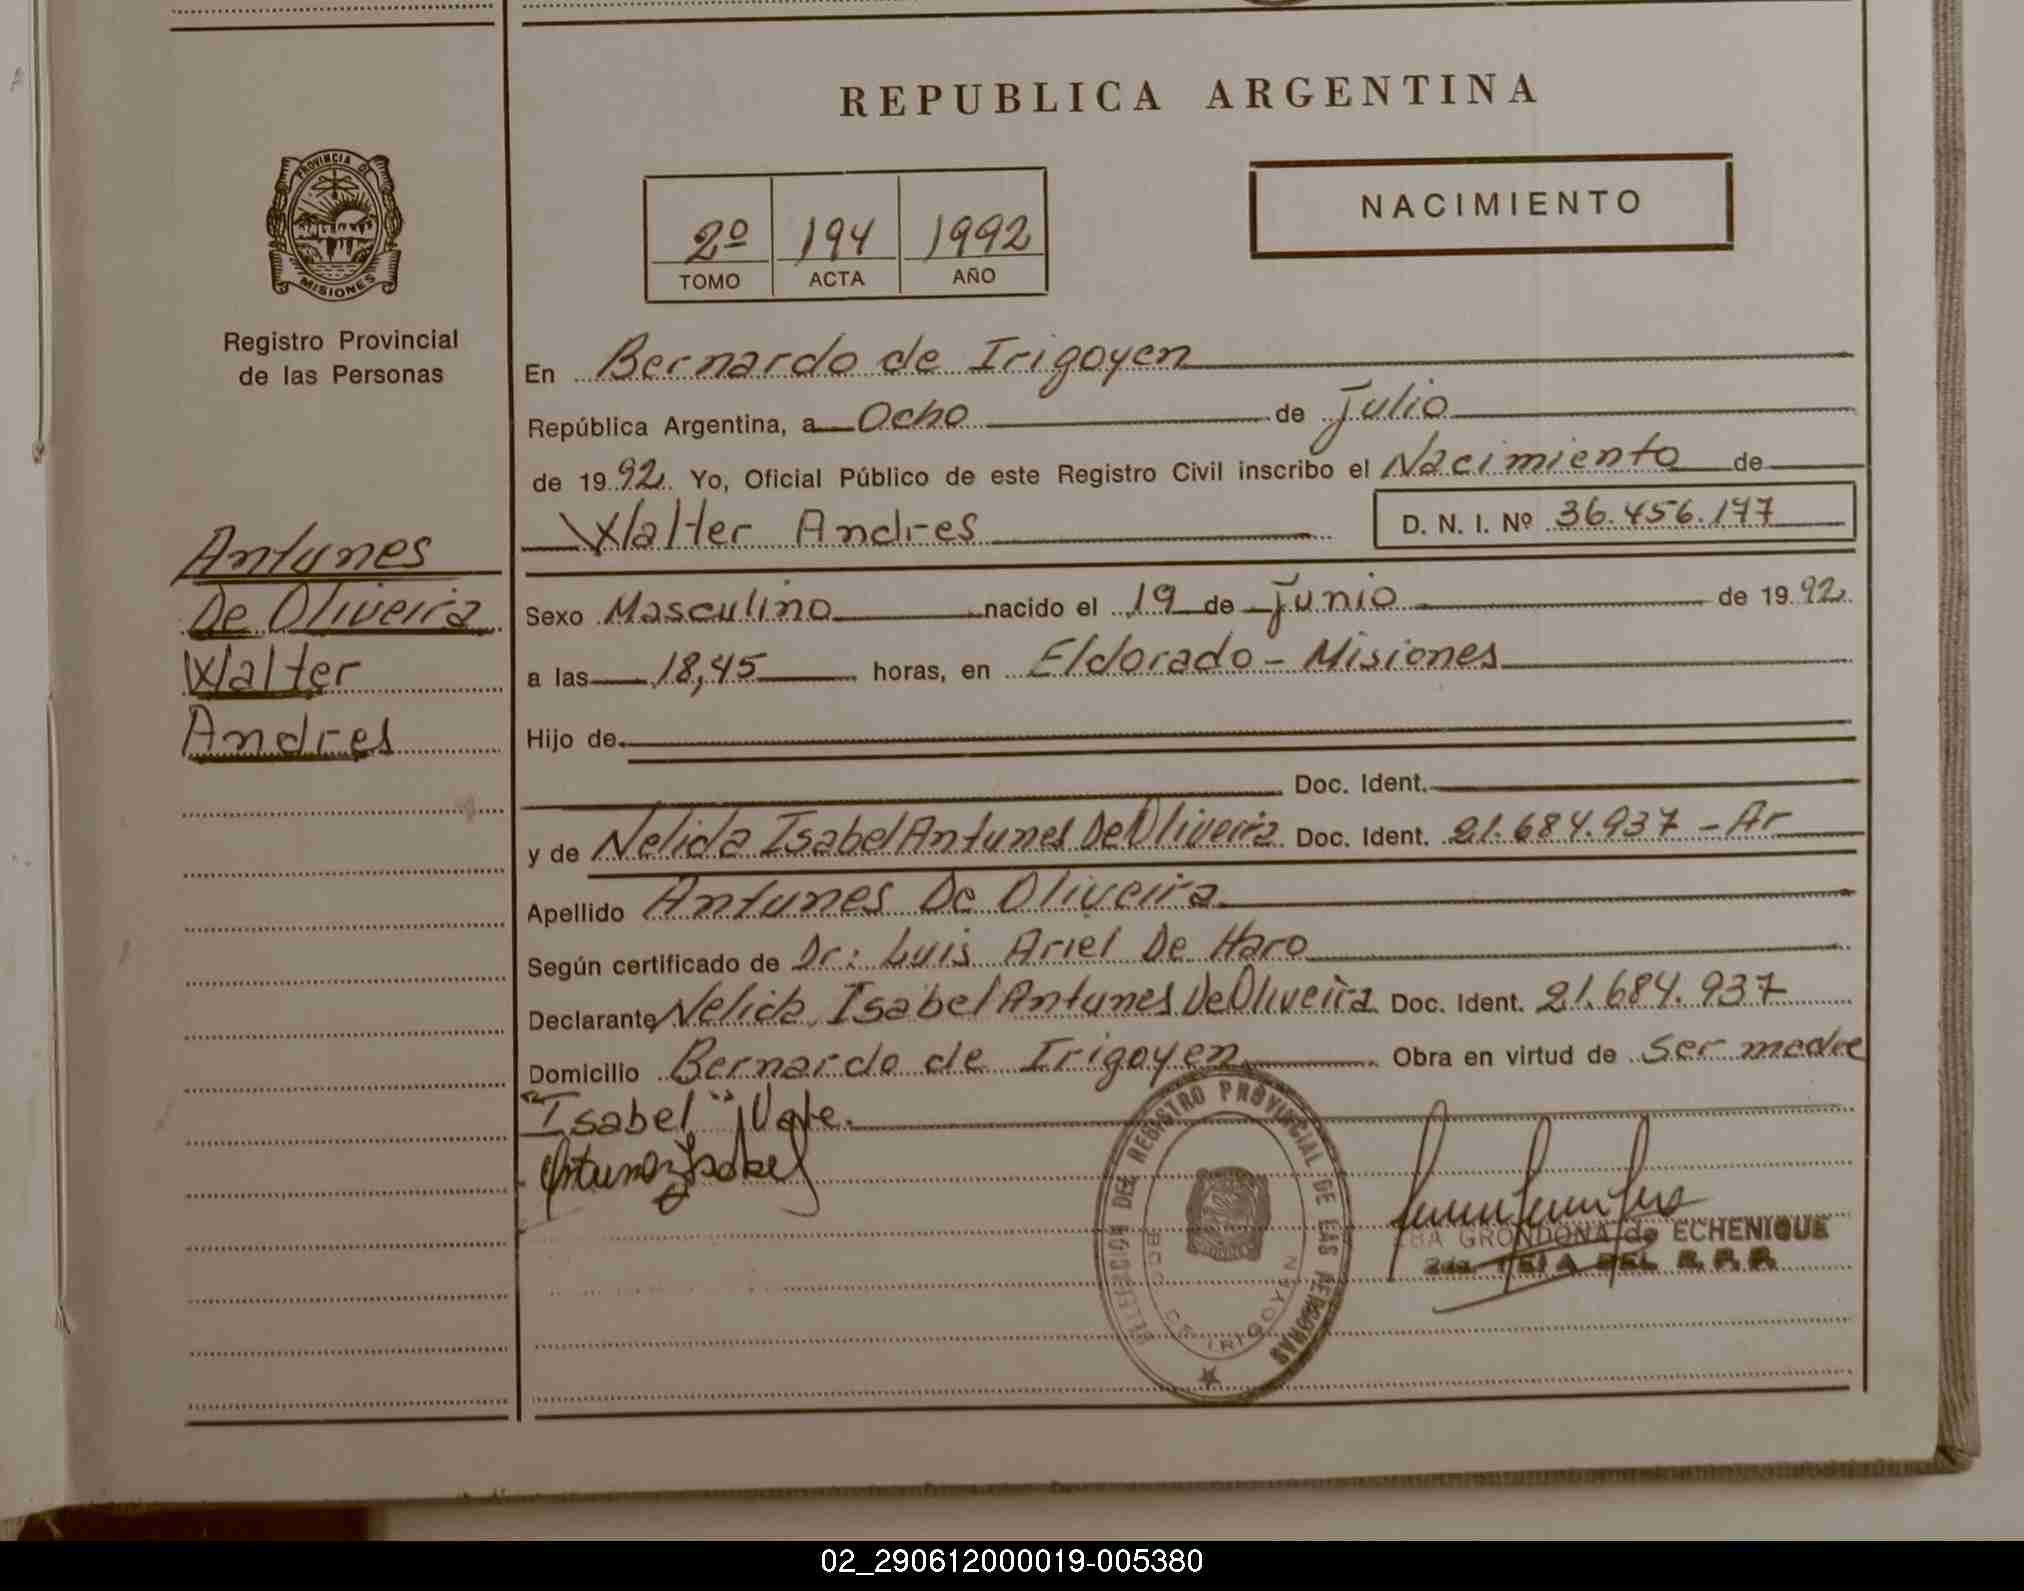 REPUBLICA ARGENTINA
PROVINCIA DE
MISIONES
Registro Provincial
de las Personas
2º 194 1992
TOMO ACTA AÑO
NACIMIENTO
En Bernardo de Irigoyen
República Argentina, a Ocho de Julio
de 1992 Yo, Oficial Público de este Registro Civil inscribo el Nacimiento de
Walter Andres D. N. I. Nº 36.456.177
Antunes
De Oliveira
Walter
Andres
Sexo Masculino nacido el 19 de Junio de 1992
a las 18,45 horas, en Eldorado - Misiones
Hijo de
Doc. Ident.
y de Nelida Isabel Antunes De Oliveira Doc. Ident. 21.684.937 - Ar
Apellido Antunes De Oliveira
Según certificado de Dr: Luis Ariel De Haro
Declarante Nelida Isabel Antunes De Oliveira Doc. Ident. 21.684.937
Domicilio Bernardo de Irigoyen Obra en virtud de Ser madre
"Isabel" Vale.
Antunez Isabel
DELEGACION DEL REGISTRO PROVINCIAL DE LAS PERSONAS
BDO. DE IRIGOYEN
GRONDONA de ECHENIQUE
DEL R. P. P.
02_290612000019-005380